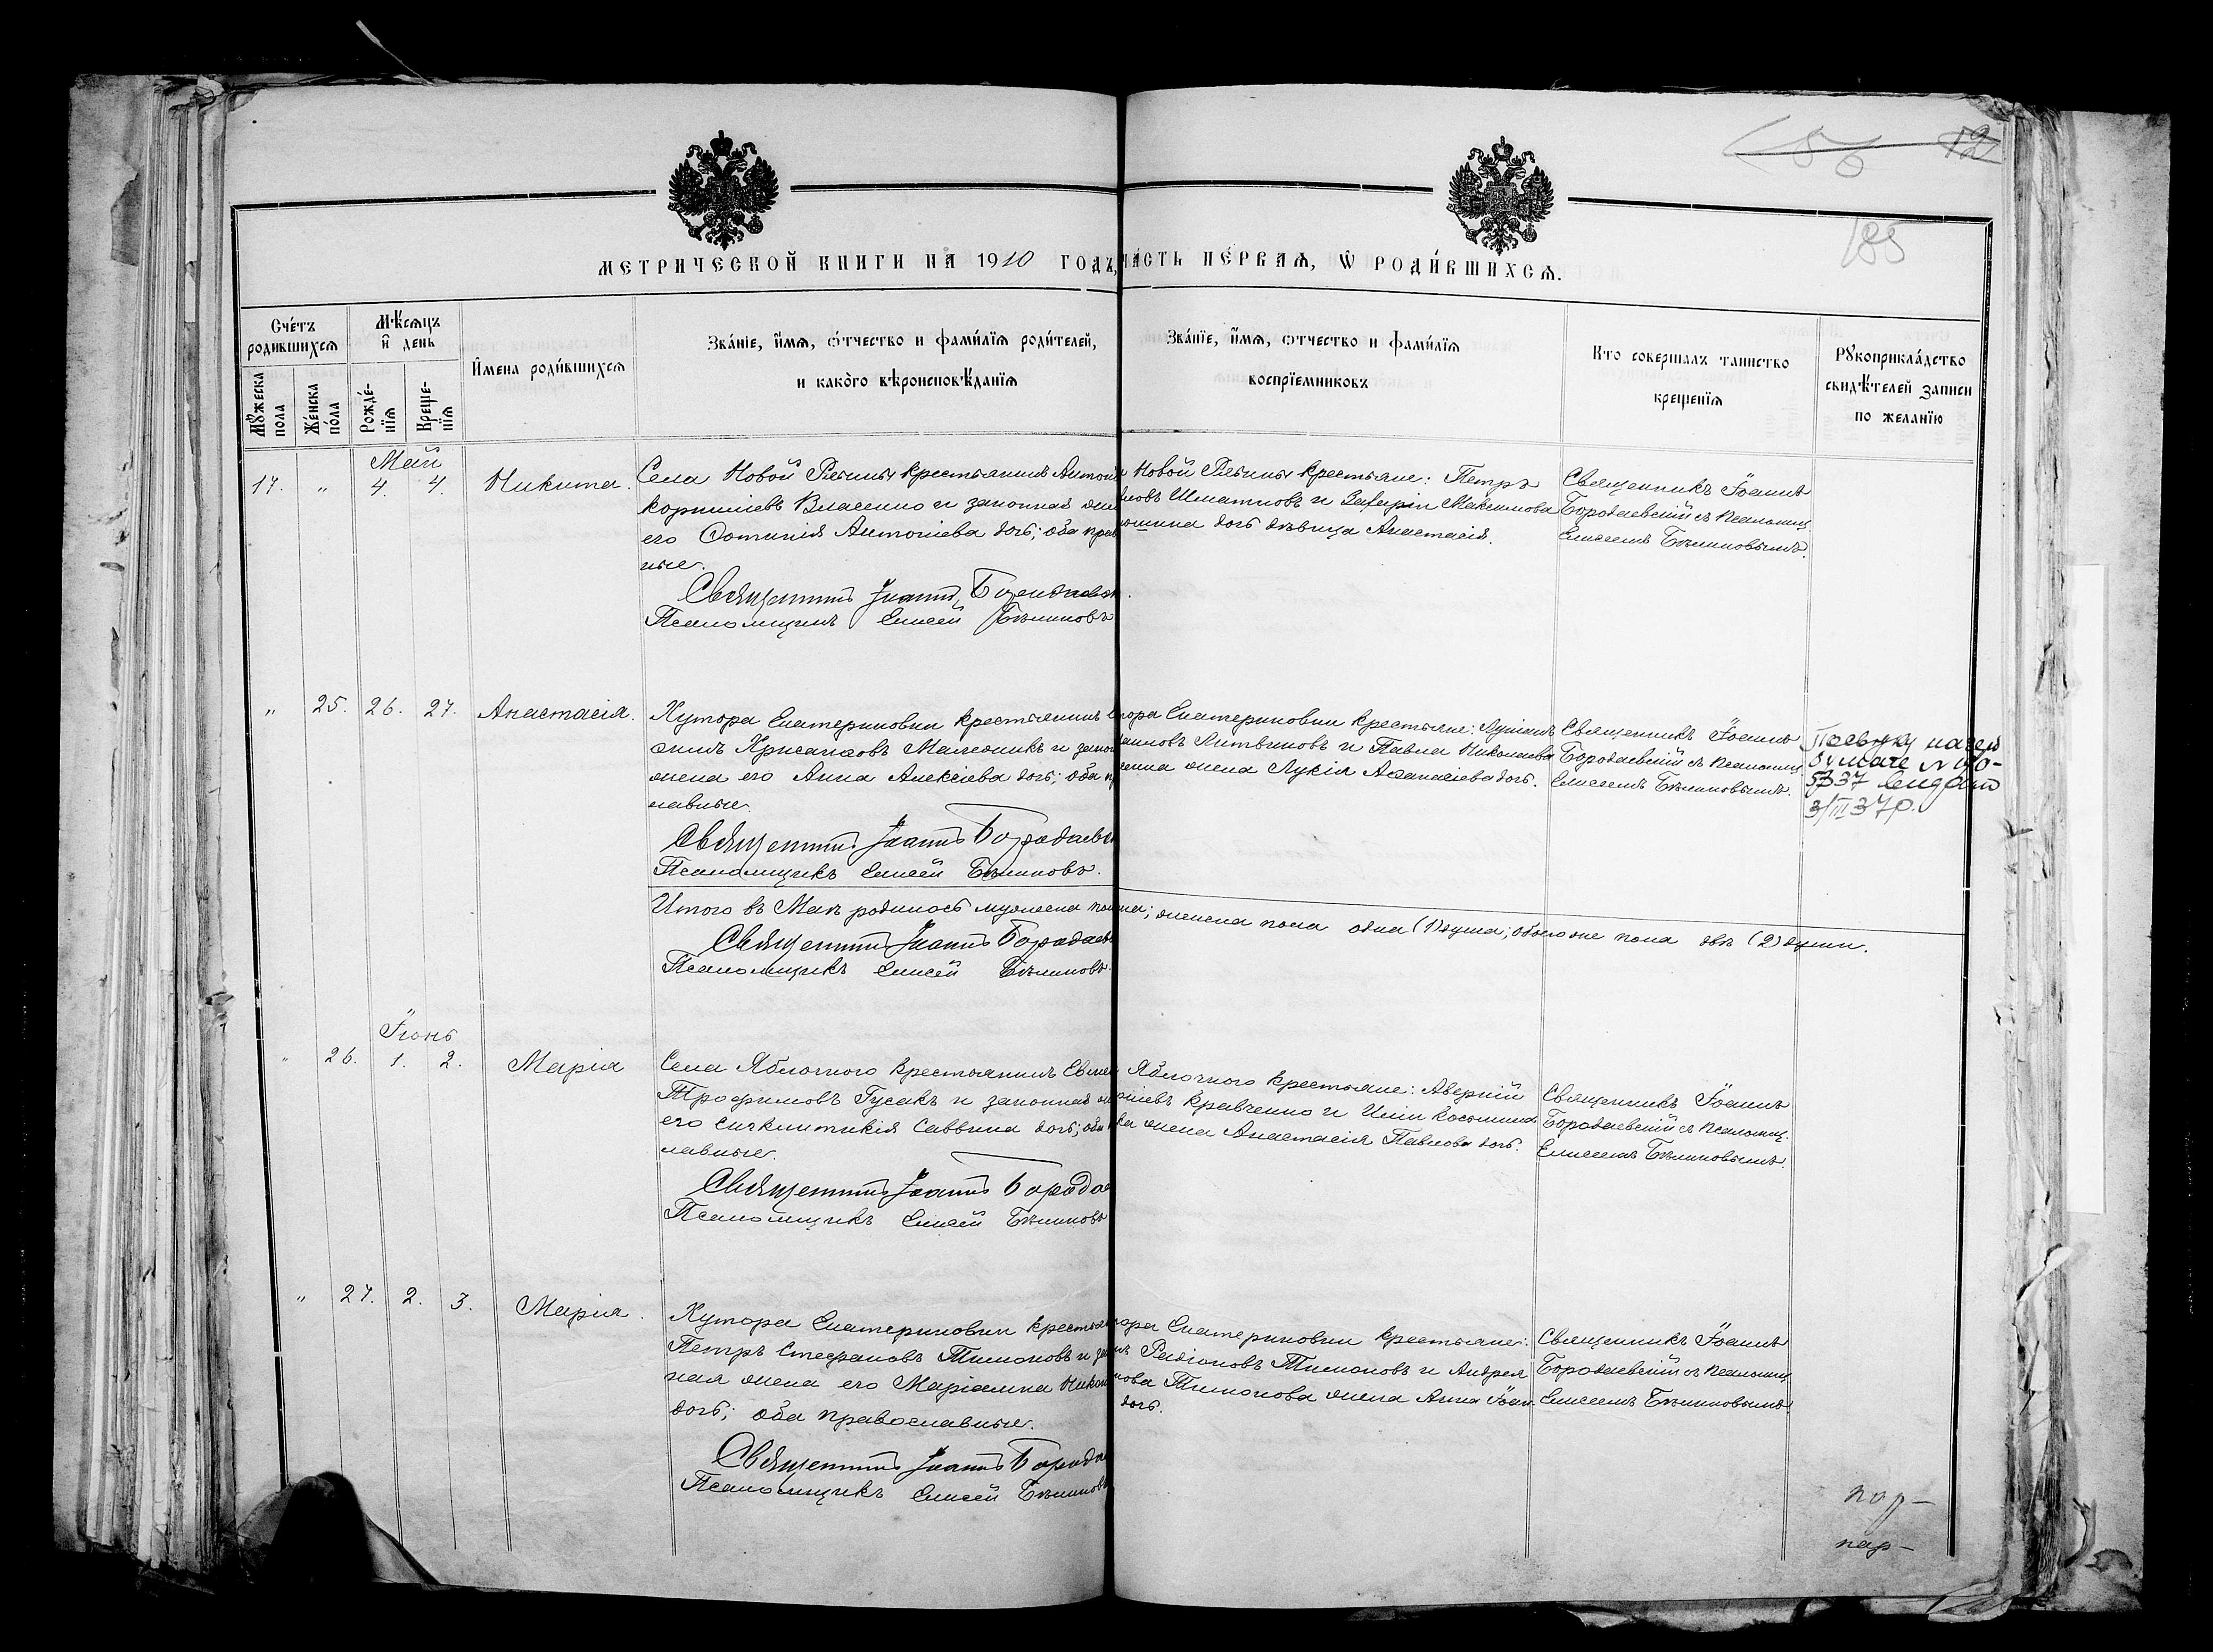 12
185
МЕТРИЧЕСКОЙ КНИГИ НА 1910 ГОДЪ,
ЧАСТЬ ПЕРВАЯ, Ѡ РОДИВШИХСЯ.
Счетъ родившихся
Мужеска пола
Женска пола
Мѣсяцъ и день
Рожденія
Крещенія
Имена родившихся
Званіе, имя, отчество и фамилія родителей,
и какого вѣроисповѣданія
Званіе, имя, отчество и фамилія
воспріемниковъ
Кто совершалъ таинство
крещенія
Рукоприкладство
свидѣтелей записи
по желанію
Май
17. " 4. 4. Никита.
Села Новой Рябины крестьянинъ Антоній
Корниліевъ Власенко и законная жена
его Фотинія Антоніева дочь; оба прав
ные.
Священникъ Іоаннъ Бородаевск
Псаломщикъ Елисей Бѣликовъ
Новой Рябины крестьяне: Петръ
Шматковъ и Максимова
дочь дѣвица Анастасія.
Священникъ Іоаннъ
Бородаевскій съ псаломщ.
Елисеемъ Бѣликовымъ.
" 25. 26. 27. Анастасія.
Хутора Екатериновки крестьянинъ
Хрисанфовъ Мележикъ и закон
жена его Анна Алексіева дочь; оба п
лавные.
Священникъ Іоаннъ Бородаевск
Псаломщикъ Елисей Бѣликовъ.
тора Екатериновки крестьяне:
Литвиновъ и Павла Николаева
жена Лукія Аѳанасіева дочь.
Священникъ Іоаннъ
Бородаевскій съ псаломщ.
Елисеемъ Бѣликовымъ.
3/III 37 р.
Итого въ Маѣ родилось мужеска пола; женска пола одна (1) душа; обоего же пола двѣ (2) души.
Священникъ Іоаннъ Бородаевск
Псаломщикъ Елисей Бѣликовъ.
Іюнь
" 26. 1. 2. Марія
Села Яблочного крестьянинъ
Трофимовъ Гусакъ и законная ж
его Синклитикія Саввина дочь; оба
лавные.
Священникъ Іоаннъ Бородае
Псаломщикъ Елисей Бѣликовъ
Яблочного крестьяне: Аверкій
Кравченко и Косьмина
жена Анастасія Павлова дочь.
Священникъ Іоаннъ
Бородаевскій съ псаломщ.
Елисеемъ Бѣликовымъ.
" 27. 2. 3. Марія.
Хутора Екатериновки крестьян
Петръ Стефановъ Тимоновъ и за
ная жена его Маріамна Никол
дочь; оба православные.
Священникъ Іоаннъ Бородае
Псаломщикъ Елисей Бѣликовъ
тора Екатериновки крестьяне:
Родіоновъ Тимоновъ и Андрея
Тимонова жена Анна Іоан.
дочь.
Священникъ Іоаннъ
Бородаевскій съ псаломщ.
Елисеемъ Бѣликовымъ.